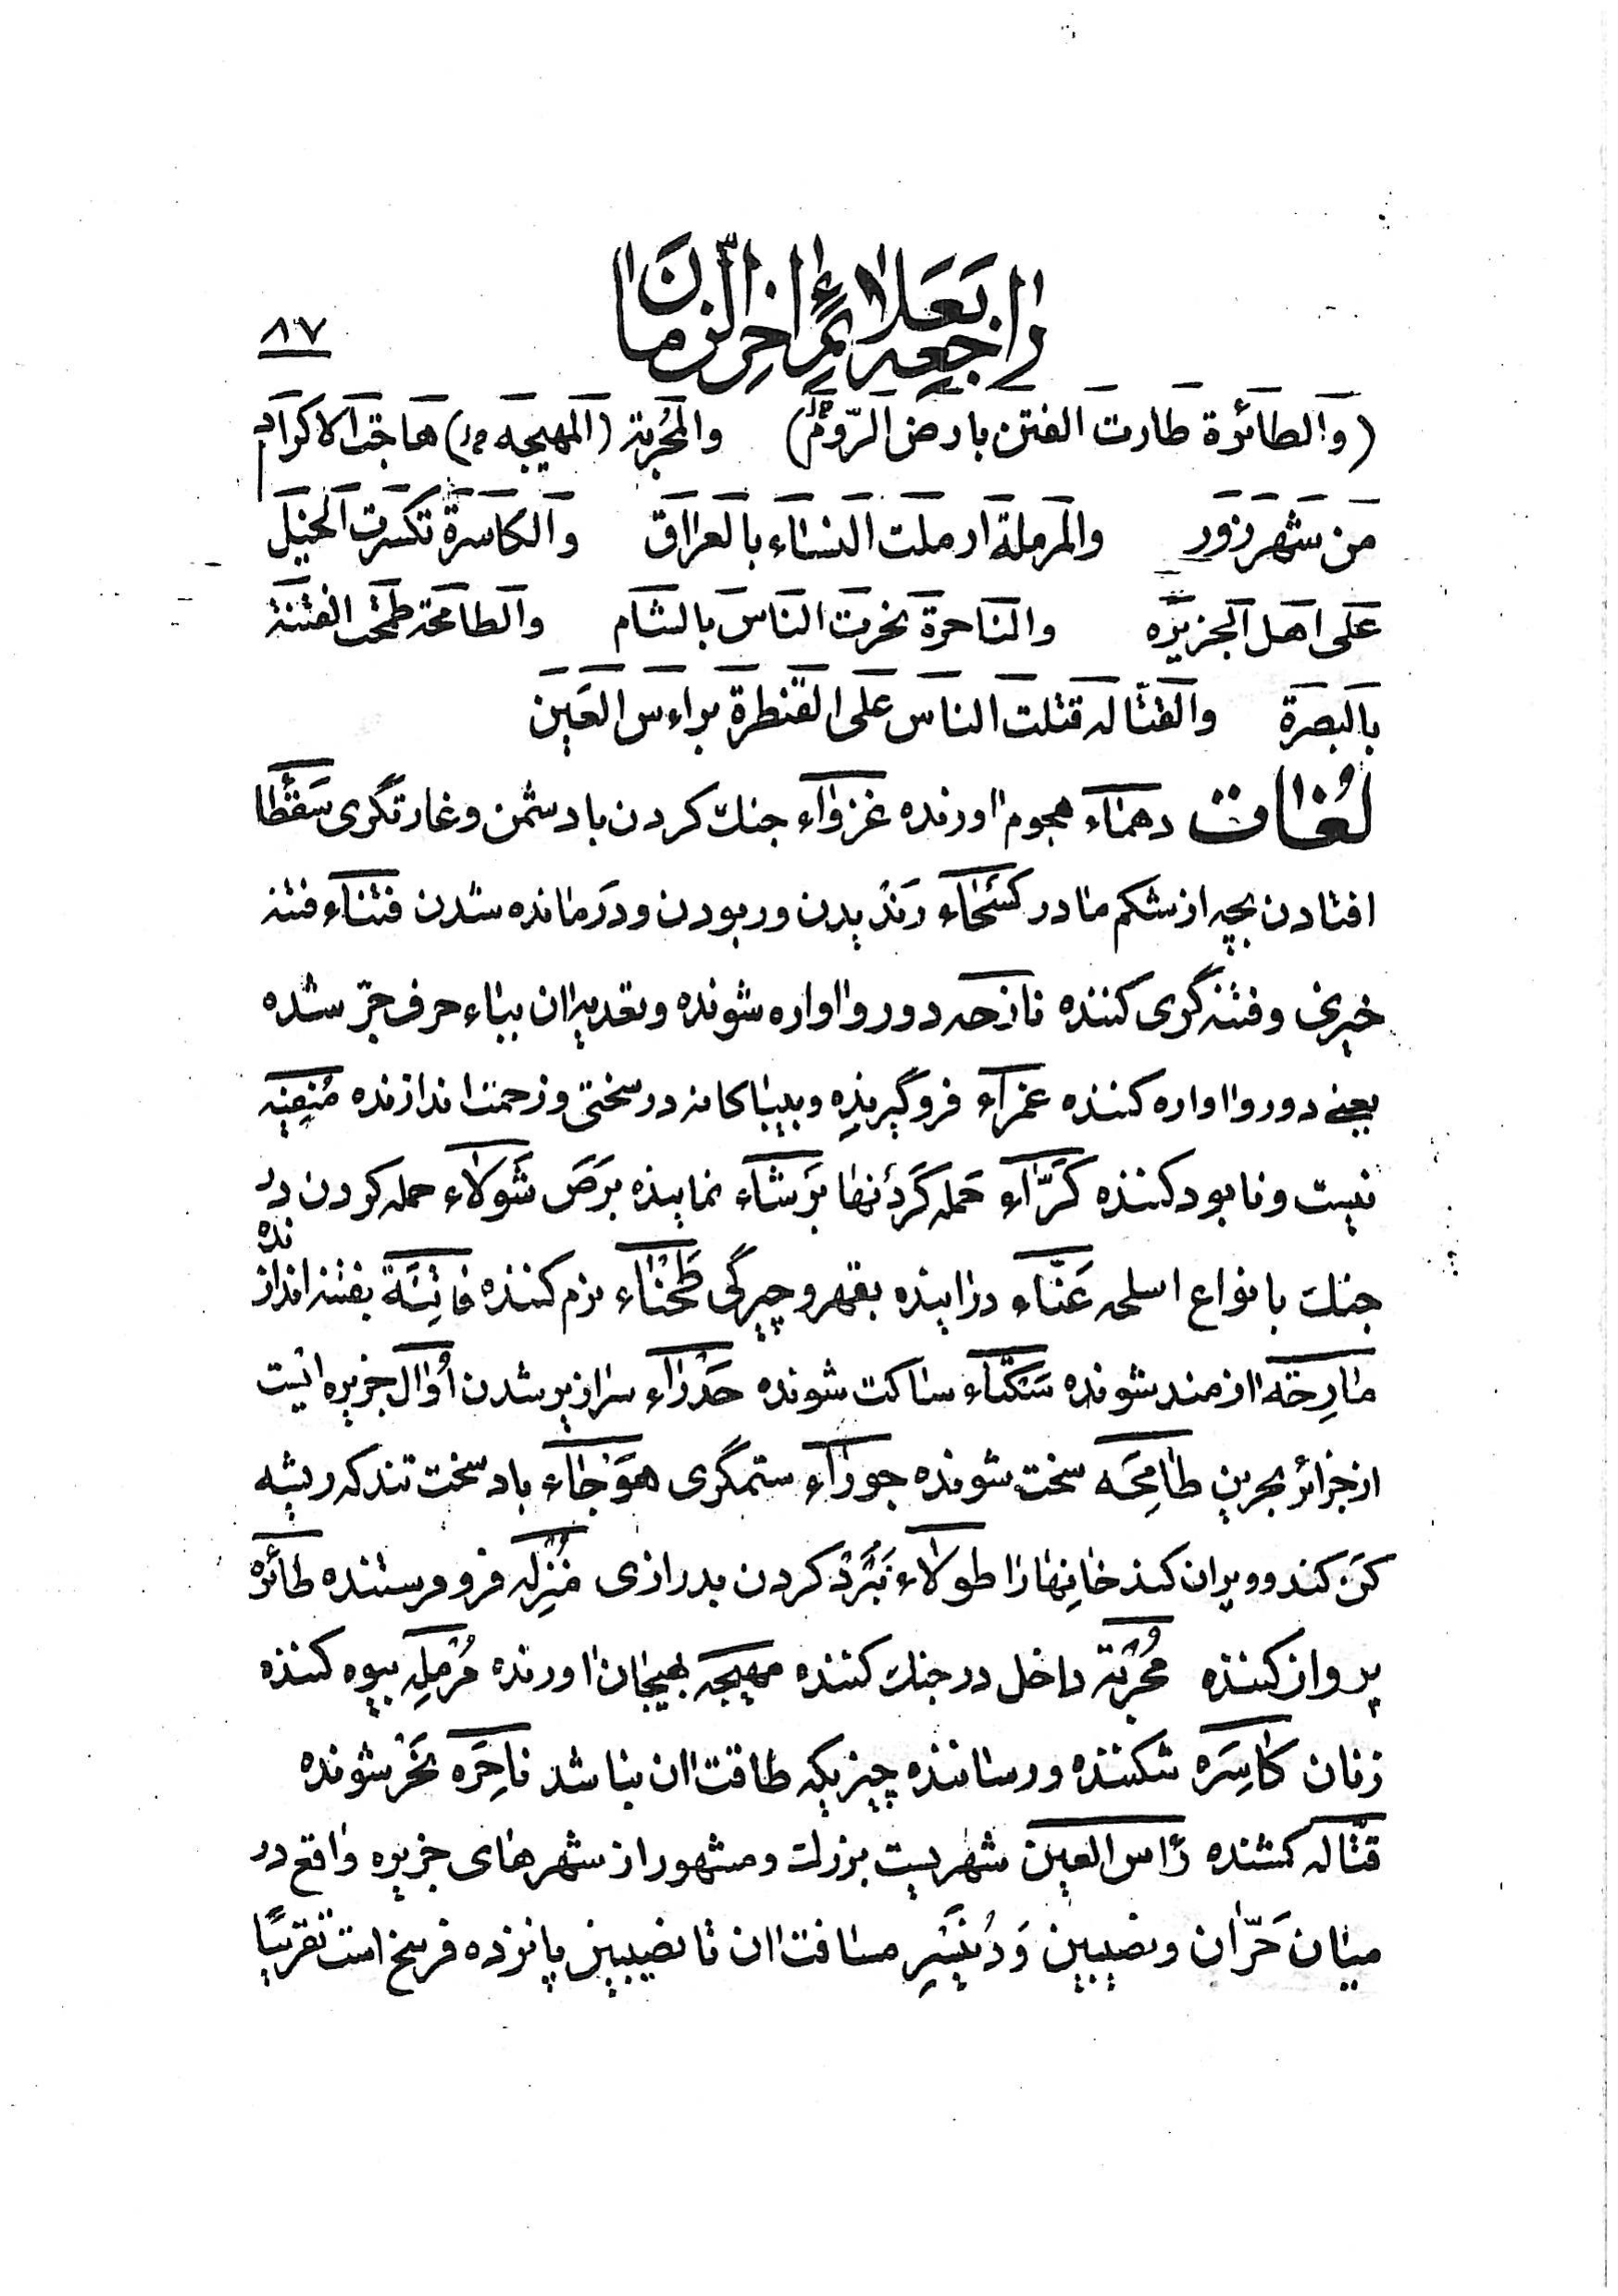 راجعه بعلائم اخر الزمان
۸۷
(والطائرة طارت الفتن بارض الروم) والمحربة (المهیجه) هاجت الاکراد
من شهر زور والمرملة ارملت النساء بالعراق والکاسرة تکسرت الخیل
علی اهل الجزیره والناحرة نحرت الناس بالشام والطامحة طمحت الفتنة
بالبصرة والقتاله قتلت الناس علی القنطرة براءس العین
لغات دهماء هجوم اورنده غزواء جنك کردن با دشمن و غارتگری سقطا
افتادن بچه از شکم مادر کسحاء رندیدن و ربودن و درمانده شدن فتناء فتنه
خیری و فتنه گری کننده نازحه دور و اواره شونده و تعدیه ان بباء حرف جر شده
یعنی دور و اواره کننده غمراء فرو گیرنده و بیباکانه در سختی و زحمت اندازنده منفیه
نیست و نابود کننده کراء حمله کردنها برشاء نماینده برص شولاء حمله کردن در
جنك بانواع اسلحه عناء دراینده بقهر و چیرگی طحناء نرم کننده فاتنة بفتنه اندازنده
مارحة ازمند شونده سکتاء ساکت شونده حدراء سرازیر شدن اوال جزیره ایست
از جزائر بحرین طامحه سخت شونده جوراء ستمگری هوجاء باد سخت تند که ریشه
کن کند و ویران کند خانها را طولاء نبرد کردن بدرازی منزله فرو فرستنده طائره
پرواز کننده محربة داخل در جنك کننده مهیجه بهیجان اورنده مرمله بیوه کننده
زنان کاسره شکننده و رساننده چیزیکه طاقت ان نباشد ناحره نحر شونده
قتاله کشنده راس العین شهریست بزرك و مشهور از شهرهای جزیره واقع در
میان حران و نصیبین و دنیسر مسافت ان تا نصیبین پانزده فرسخ است تقریبا